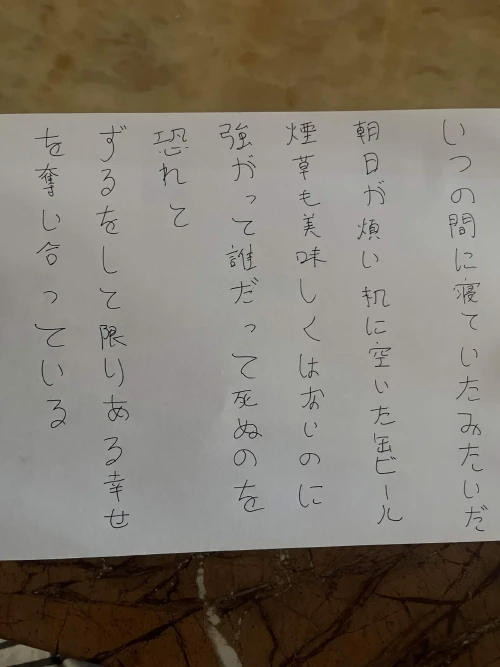 いつの間に寝ていたみたいだ
朝日が煩い机に空いた缶ビール
煙草も美味しくはないのに
強がって誰だって死ぬのを
恐れて
ずるをして限りある幸せ
を奪い合っている